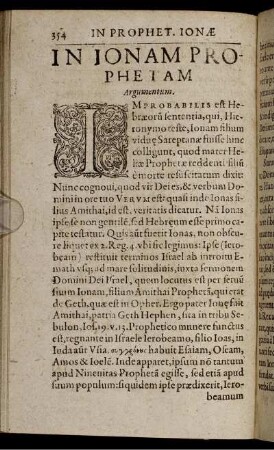 354 IN PROPHET. IONÆ
IN IONAM PRO-
PHETAM
Argumentum.
IMPROBABILIS est He-
bræorũ sententia, qui, Hie-
ronymo teste, Ionam filium
viduę Sareptanæ fuisse hinc
colligunt, quod mater He-
liæ Prophetæ reddenti filiũ
è morte resuscitatum dixit
Nunc cognoui, quod vir Dei es, & verbum Do-
mini in ore tuo VERVM est: quasi inde Ionas fi-
lius Amithai, id est, veritatis dicatur. Nã Ionas
ipse se non gentilẽ, sed Hebręum esse primo ca-
pite testatur. Quis aũt fuerit Ionas, non obscu-
re liquet ex 2. Reg. 4. vbi sic legimus: Ipse (Iero-
beam) restituit terminos Israel ab introitu E-
math vsq; ad mare solitudinis, iuxta sermonem
Domini Dei Israel, quem locutus est per seruũ
suum Ionam, filium Amithai Prophetã, qui erat
de Geth, quæ est in Opher. Ergo pater Ionę fuit
Amithai, patria Geth Hephen, sita in tribu Se-
bulon, Ios. 19. v. 13. Prophetico munere functus
est, regnante in Israele Ierobeamo, filio Ioas, in
Iuda aũt Vsia. habuit Esaiam, Oseam,
Amos & Ioelẽ. Inde apparet, ipsum nõ tantum
apud Niniuitas Prophetã egisse, sed etiã apud
suum populum: siquidem ipse prædixerit, Iero-
beamum